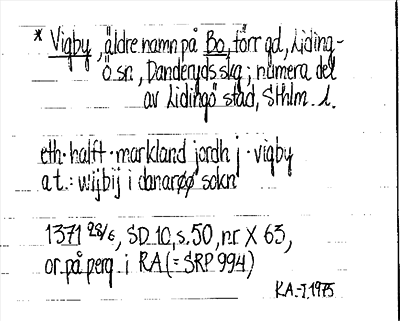 * Vigby, äldre namn på Bo, förr gd, Liding-
ö sn, Danderyds skg; numera del
av Lidingö stad, Sthlm. l.
eth · halft · markland jordh j · vigby
at.: wijbij i danarøø sokn
1371 28/6, SD 10, s. 50, nr X 63,
or. på perg. i RA (= SRP 994)
K.A.-J. 1975